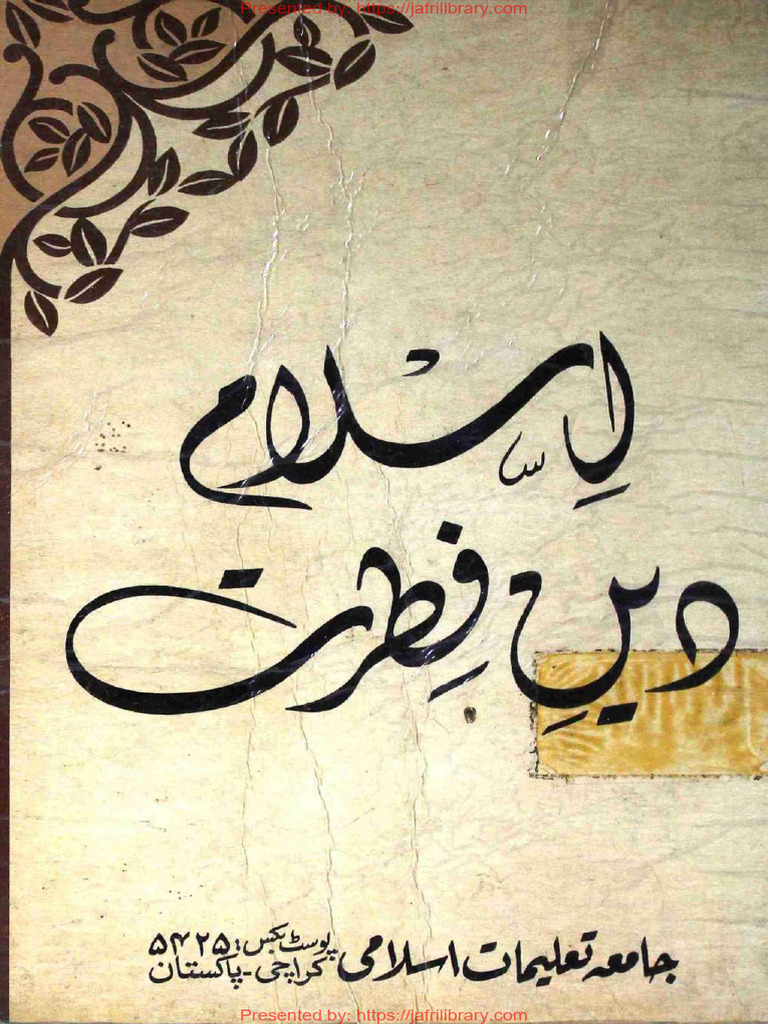 Presented by: https://jafrilibrary.com
اِسلام
دینِ فِطرت
جامعہ تعلیمات اسلامی پوسٹ بکس: ۵۴۲۵
کراچی - پاکستان
Presented by: https://jafrilibrary.com